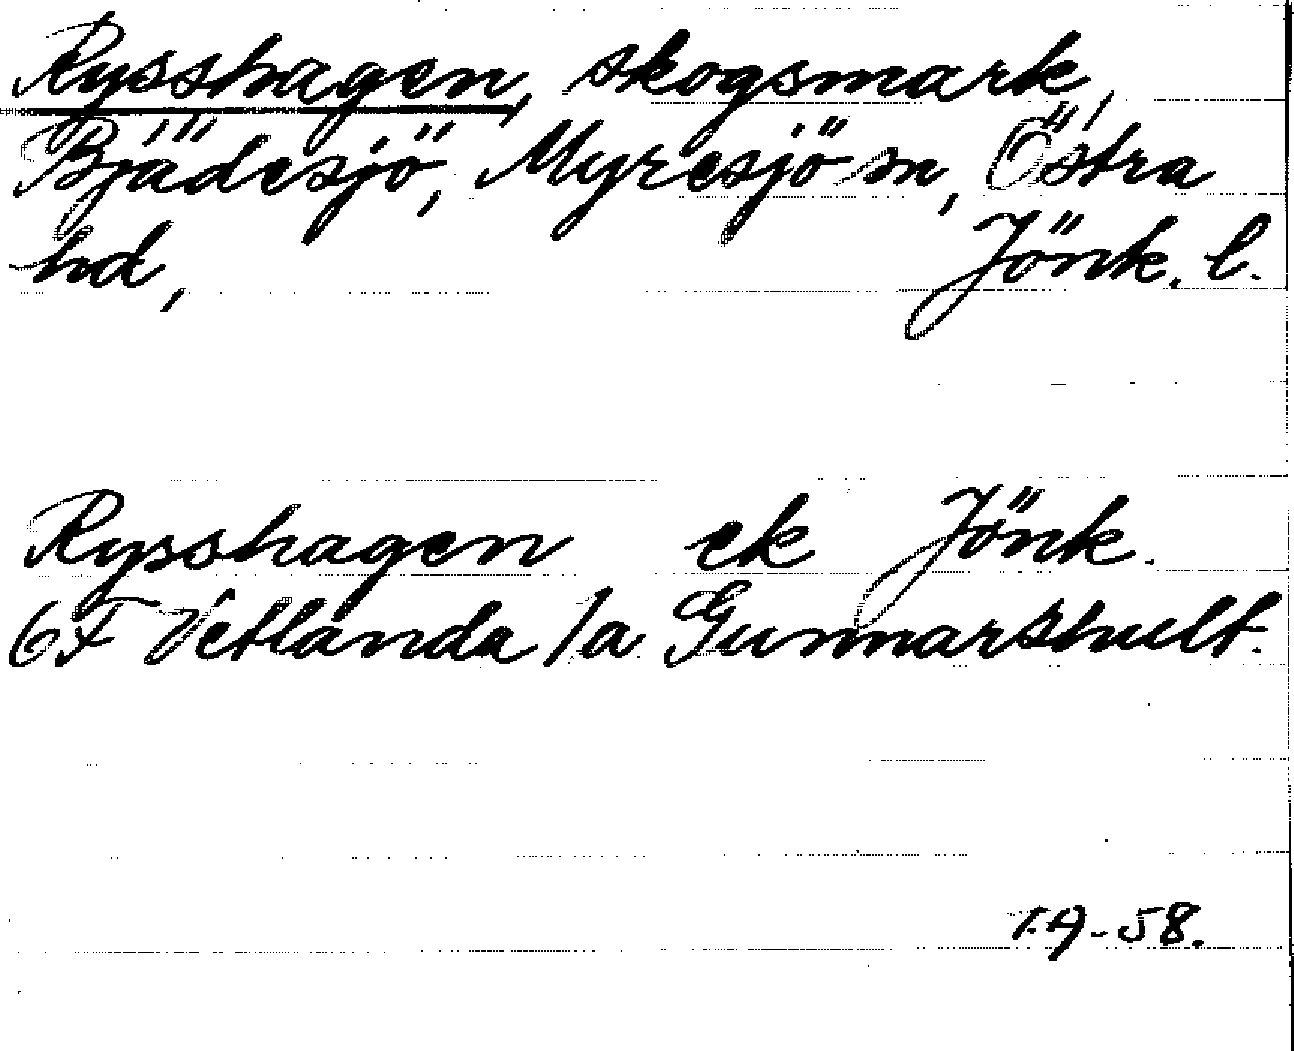 Rysshagen, skogsmark,
Bjädesjö, Myresjö sn, Östra
hd, Jönk. l.
Rysshagen ek Jönk.
6F Vetlanda 1a Gunnarshult.
19-58.